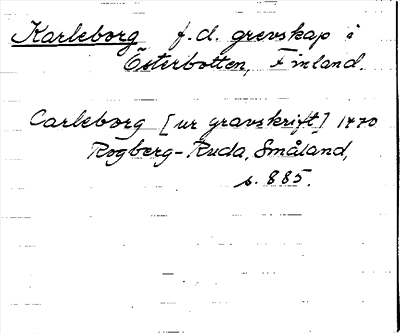 Karleborg f.d. grevskap i
Österbotten, Finland.
Carleborg [ur gravskrift] 1770
Rogberg-Ruda, Småland,
s. 885.